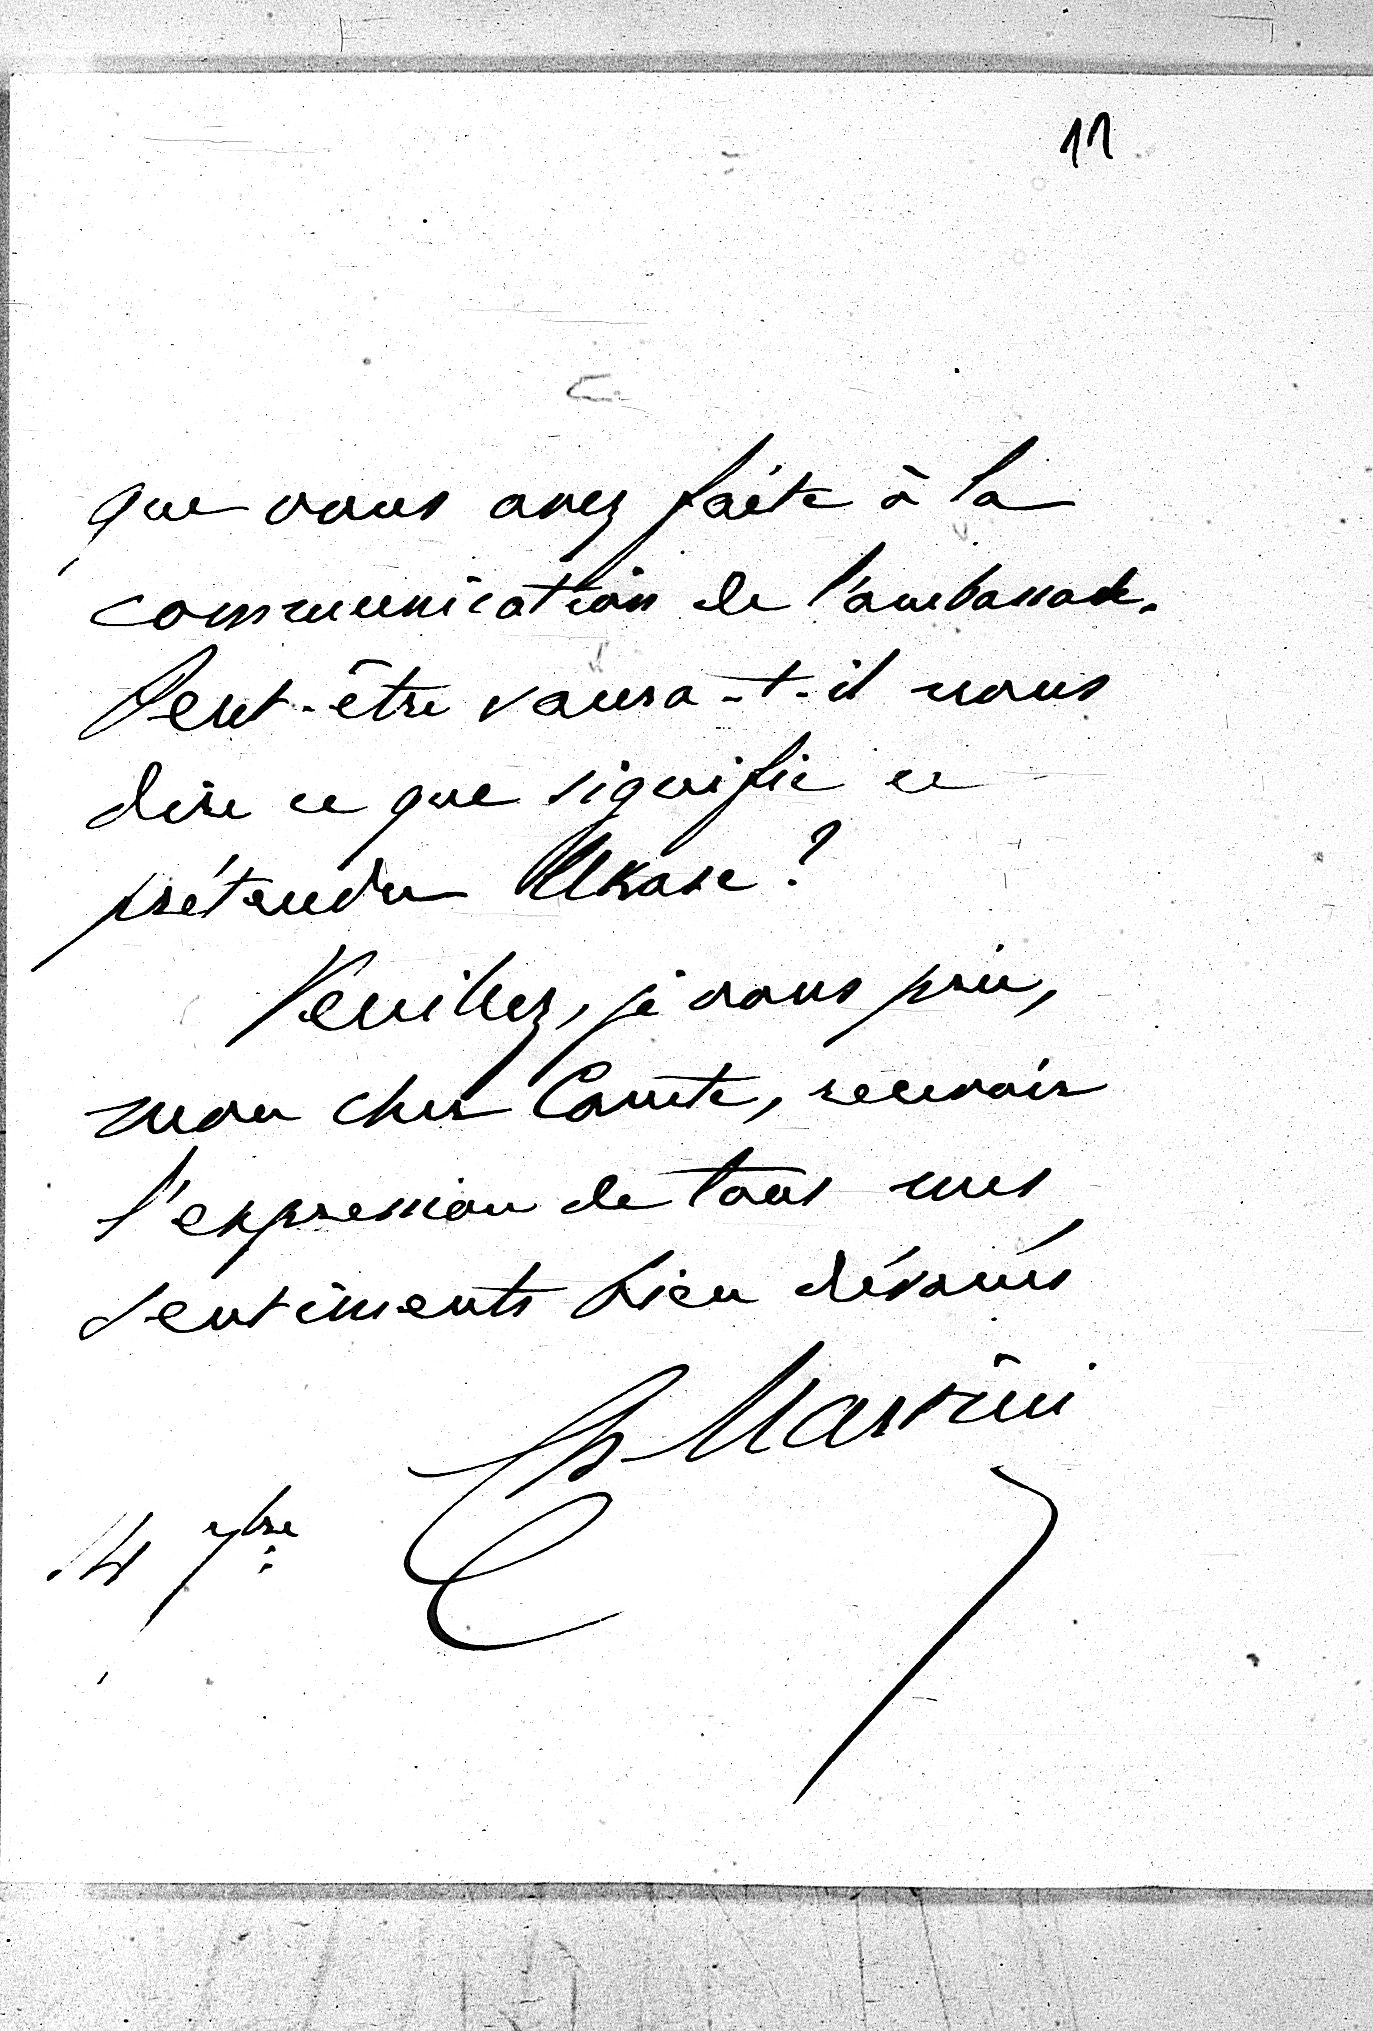 11
que vous avez faite à la
communication de l'ambassade.
Peut-être voura-t-il nous
dire ce que signifie ce
prétendu Ukase?
Veuillez, je vous prie,
mon cher Comte, recevoir
l'expression de tous mes
sentiments bien dévoués
Ch Martini
14 7bre